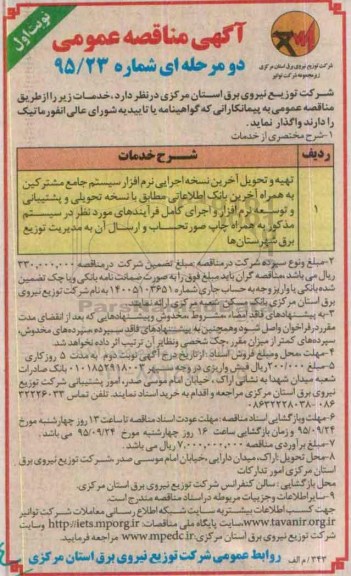 نوبت اول
آگهی مناقصه عمومی
دو مرحله ای شماره ۹۵/۲۳
شرکت توزیع نیروی برق استان مرکزی
زیرمجموعه شرکت توانیر
شرکت توزیع نیروی برق استان مرکزی در نظر دارد، خدمات زیر را از طریق
مناقصه عمومی به پیمانکارانی که گواهینامه یا تاییدیه شورای عالی انفورماتیک
را دارند واگذار نماید.
۱-شرح مختصری از خدمات
ردیف شرح خدمات
تهیه و تحویل آخرین نسخه اجرایی نرم افزار سیستم جامع مشترکین
به همراه آخرین بانک اطلاعاتی مطابق با نسخه تحویلی و پشتیبانی
۱ و توسعه نرم افزار و اجرای کامل فرآیندهای مورد نظر در سیستم
مذکور به همراه چاپ صورتحساب و ارسال آن به مدیریت توزیع
برق شهرستان‌ها
۲-مبلغ ونوع سپرده شرکت در مناقصه: مبلغ تضمین شرکت در مناقصه ۲۳۰,۰۰۰,۰۰۰
ریال می باشد.مناقصه گران باید مبلغ فوق را به صورت ضمانت نامه بانکی ویا چک تضمین
شده بانکی یا واریز وجه به حساب جاری شماره ۱۴۰۰۵۱۰۳۶۵۱ به نام شرکت توزیع نیروی
برق استان مرکزی بانک مسکن شعبه مرکزی ارائه نمایند.
۳-به پیشنهادهای فاقد امضاء، مشروط، مخدوش و پیشنهادهایی که بعد از انقضای مدت
مقرر در فراخوان واصل شود وهمچنین به پیشنهادهای فاقد سپرده، سپرده‌های مخدوش،
سپرده‌های کمتر از میزان مقرر، چک شخصی ونظایر آن ترتیب اثر داده نخواهد شد.
۴-مهلت محل ومبلغ فروش اسناد: از تاریخ درج آگهی نوبت دوم به مدت ۵ روز کاری
۵-مبلغ ۲۰۰/۰۰۰ ریال فیش واریزی در وجه سپهر ۰۱۰۱۸۵۲۹۱۸۰۰۳ بانک صادرات
شعبه میدان شهدا به نشانی اراک، خیابان امام موسی صدر، امور پشتیبانی شرکت توزیع
نیروی برق استان مرکزی مراجعه و اقدام به خرید اسناد نمایند. تلفن تماس ۳۲۲۲۶۰۳۳
۰۸۶-۰۸۶۳۲۲۲۸۰۳۸
۶-مهلت وبازگشایی اسناد مناقصه: مهلت عودت اسناد مناقصه تا ساعت ۱۳ روز چهارشنبه مورخ
۹۵/۰۹/۲۴ و زمان بازگشایی ساعت ۱۶ روز چهارشنبه مورخ ۹۵/۰۹/۲۴ می باشد.
۷-مبلغ برآوردی مناقصه ۷,۰۰۰,۰۰۰,۰۰۰ ریال می باشد.
۸-محل تحویل:اراک،میدان دارایی،خیابان امام موسی صدر،شرکت توزیع نیروی برق
استان مرکزی امور تدارکات
محل بازگشایی: سالن کنفرانس شرکت توزیع نیروی برق استان مرکزی.
۹-سایر اطلاعات وجزییات مربوطه در اسناد مناقصه مندرج است.
جهت کسب اطلاعات بیشتر به سایت شبکه اطلاع رسانی معاملات شرکت توانیر
www.tavanir.org.ir سایت پایگاه ملی مناقصات: http://iets.mporg.ir وسایت
شرکت توزیع نیروی برق استان مرکزی www.mpedc.ir مراجعه فرمایید.
روابط عمومی شرکت توزیع نیروی برق استان مرکزی
۳۴۳/م الف